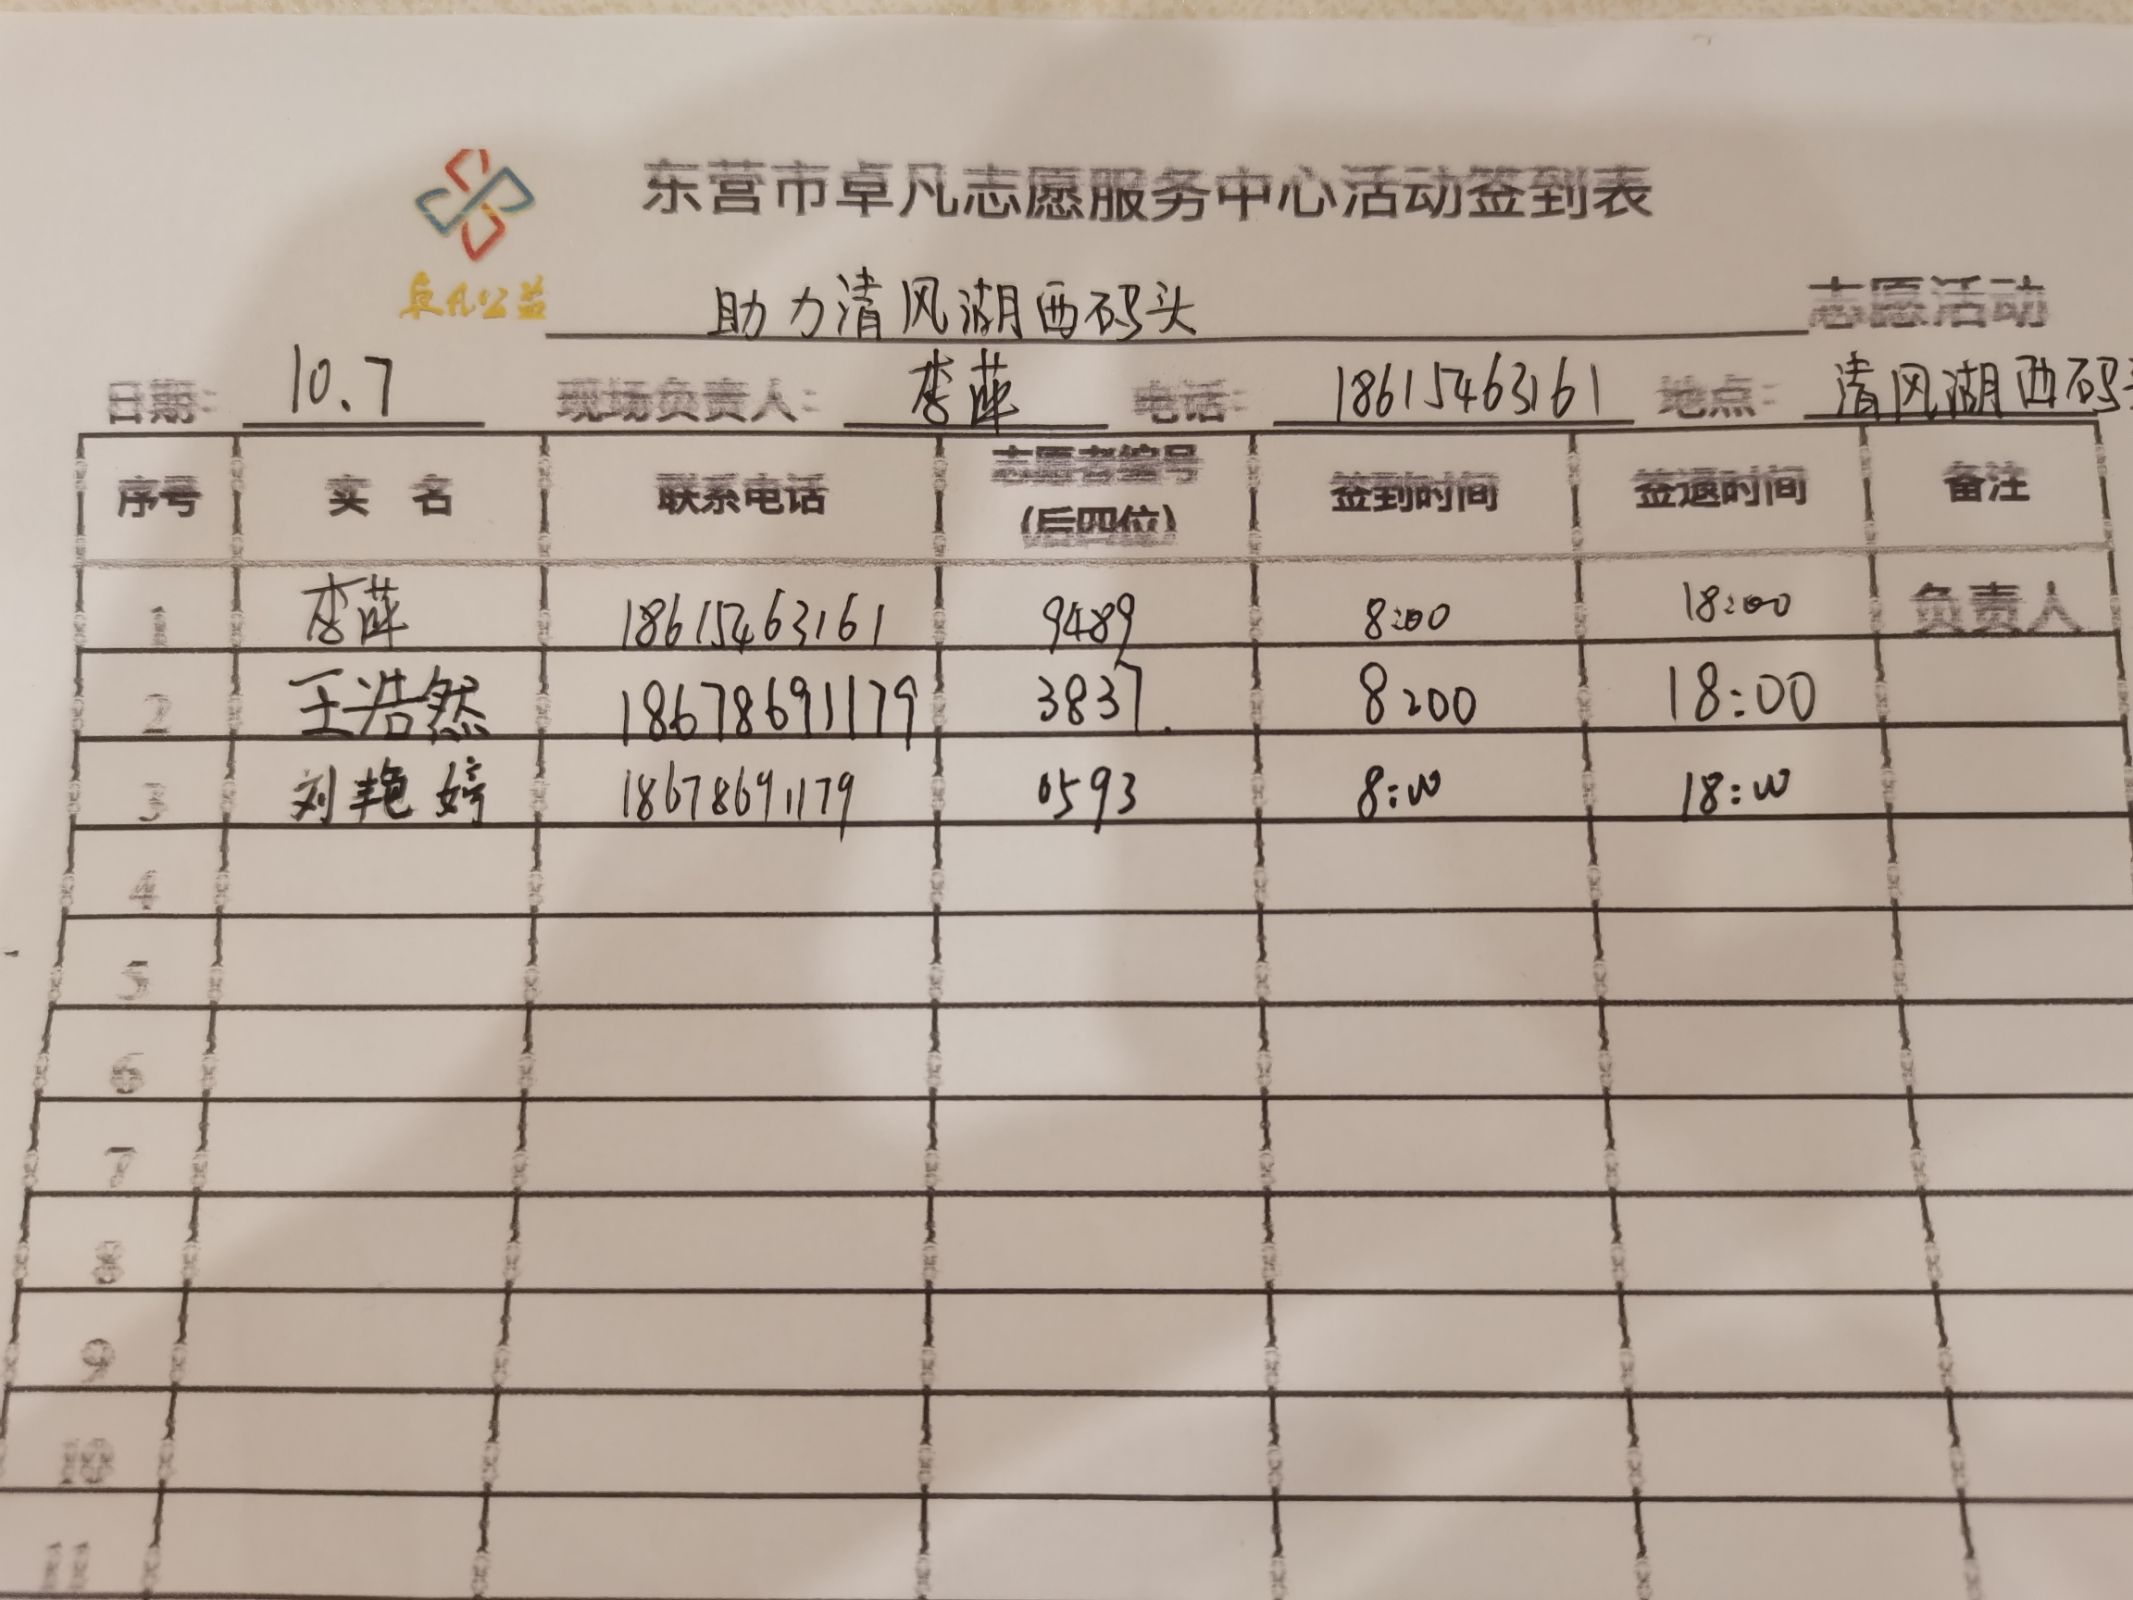 东营市卓凡志愿服务中心活动签到表
卓凡公益
助力清风湖西码头 志愿活动
日期: 10.7 现场负责人: 李萍 电话: 18615463161 地点: 清风湖西码
序号 实 名 联系电话 志愿者编号(后四位) 签到时间 签退时间 备注
1 李萍 18615463161 9489 8:00 18:00 负责人
2 王浩然 18678691179 3837. 8:00 18:00
3 刘艳婷 18678691179 0593 8:00 18:00
4
5
6
7
8
9
10
11